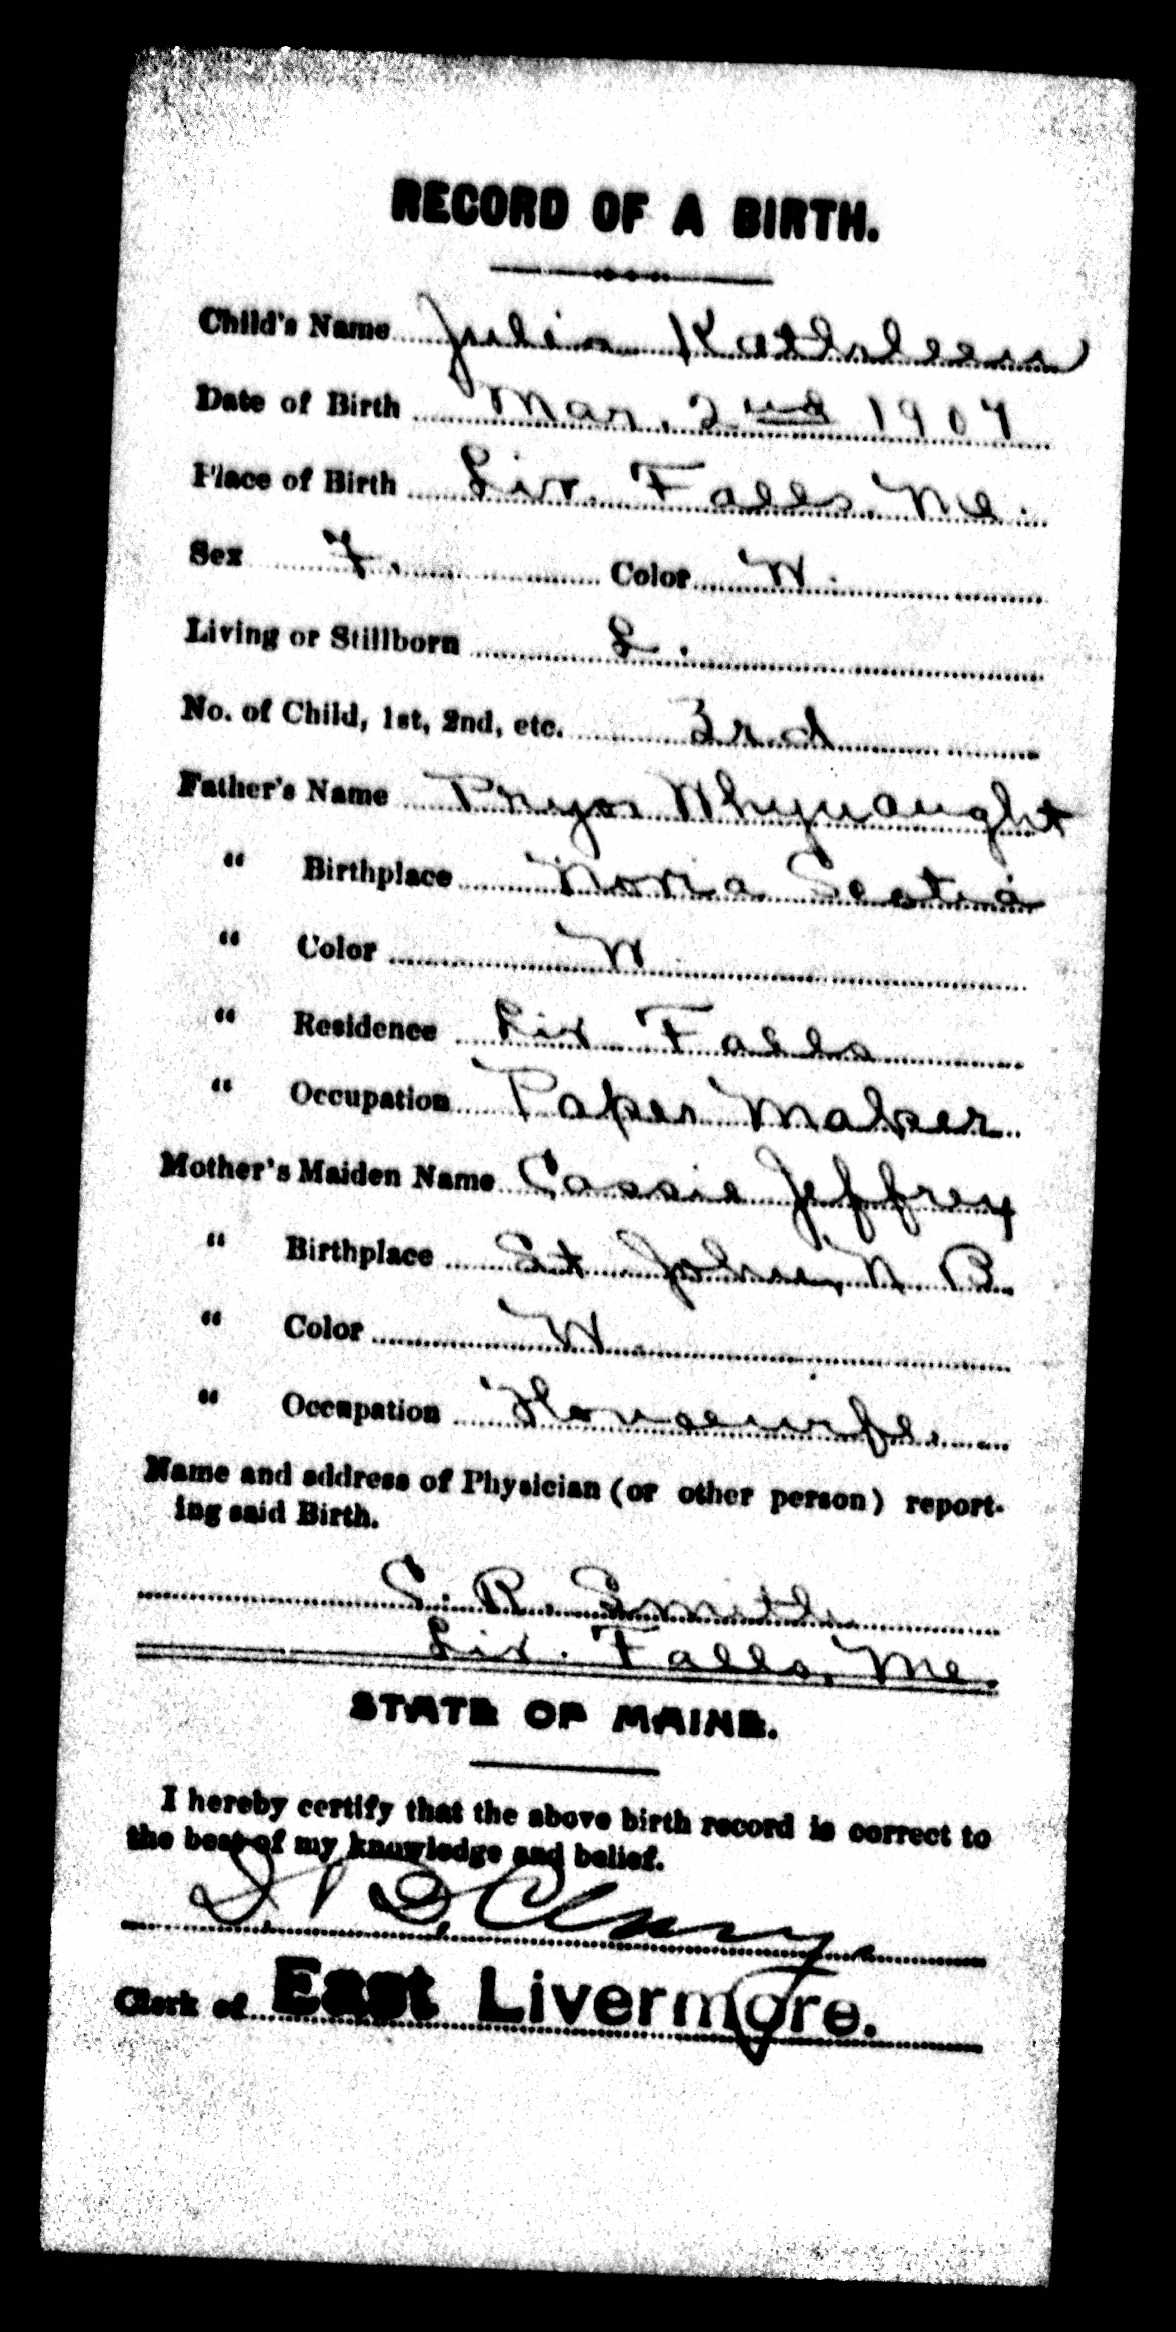 RECORD OF A BIRTH.
Child's Name Julia Kathleen
Date of Birth Mar. 2nd 1907
Place of Birth Liv. Falls, Me.
Sex F. Color W.
Living or Stillborn L.
No. of Child, 1st, 2nd, etc. 3rd
Father's Name Whynaught
" Birthplace Nova Scotia
" Color W
" Residence Liv. Falls
" Occupation Paper Maker
Mother's Maiden Name Cassie Jeffrey
" Birthplace St John, N B
" Color W.
" Occupation Housewife.
Name and address of Physician (or other person) report-
ing said Birth.
C. R. Smith
Liv. Falls, Me.
STATE OF MAINE.
I hereby certify that the above birth record is correct to
the best of my knowledge and belief.
Clerk of East Livermore.